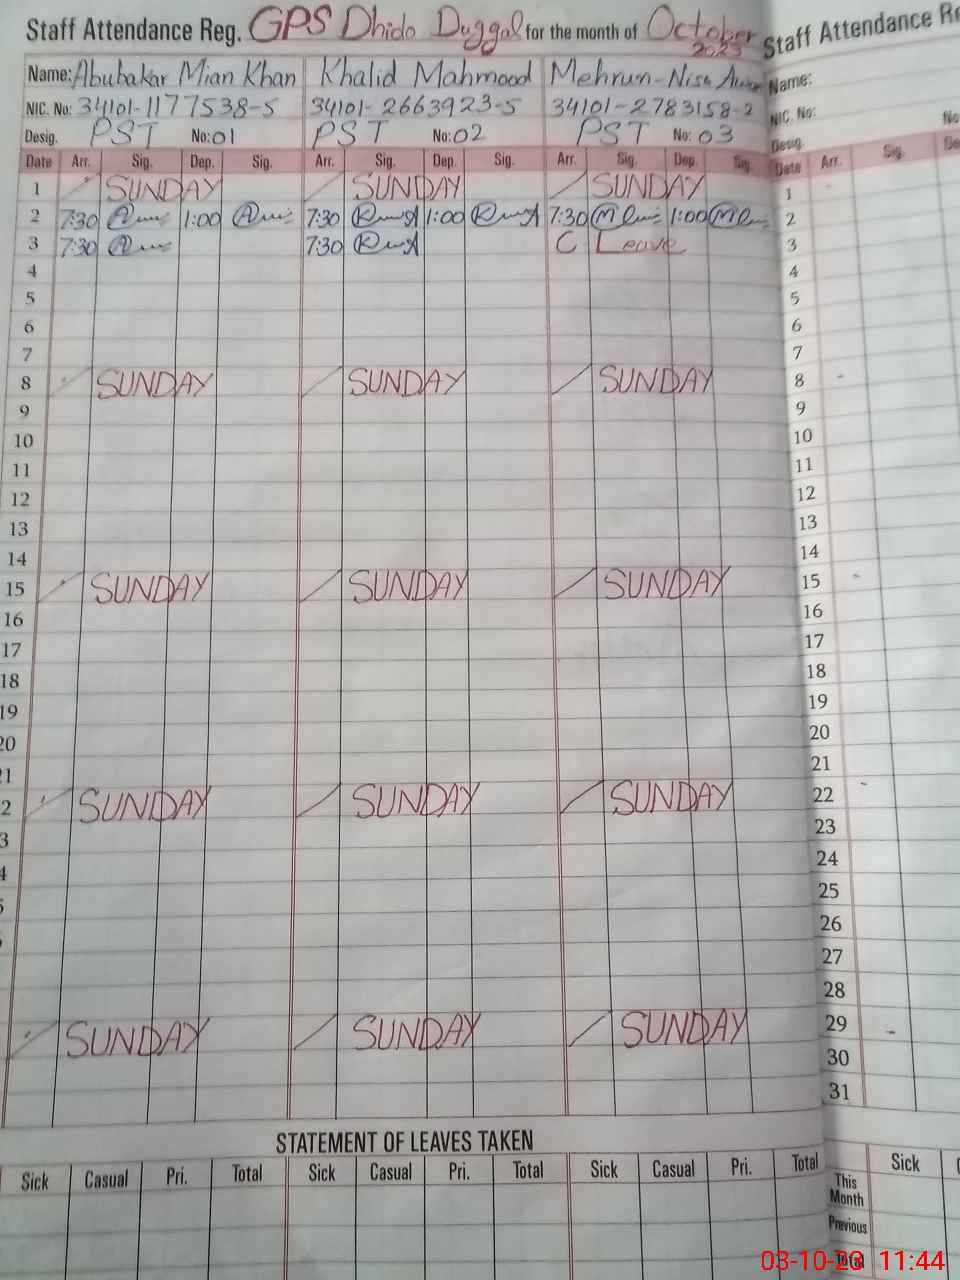 Staff Attendance Reg. GPS Dhido Duggal for the month of October 2023
Name: Abubakar Mian Khan Khalid Mahmood Mehrun-Nisa
NIC. No: 34101-1177538-5 34101-2663923-5 34101-2783158-2
Desig. PST No: 01 PST No: 02 PST No: 03
Date Arr. Sig. Dep. Sig. Arr. Sig. Dep. Sig. Arr. Sig. Dep. Sig.
1 SUNDAY SUNDAY SUNDAY
2 7:30 1:00 7:30 1:00 7:30 1:00
3 7:30 7:30 C Leave
4
5
6
7
8 SUNDAY SUNDAY SUNDAY
9
10
11
12
13
14
15 SUNDAY SUNDAY SUNDAY
16
17
18
19
20
21
2 SUNDAY SUNDAY SUNDAY
3
4
5
SUNDAY SUNDAY SUNDAY
STATEMENT OF LEAVES TAKEN
Sick Casual Pri. Total Sick Casual Pri. Total Sick Casual Pri. Total
Staff Attendance Re
Name:
NIC. No:
No
Desig.
Date Arr. Sig. De
1
2
3
4
5
6
7
8
9
10
11
12
13
14
15
16
17
18
19
20
21
22
23
24
25
26
27
28
29
30
31
Sick
This Month
Previous
Total
03-10-23 11:44